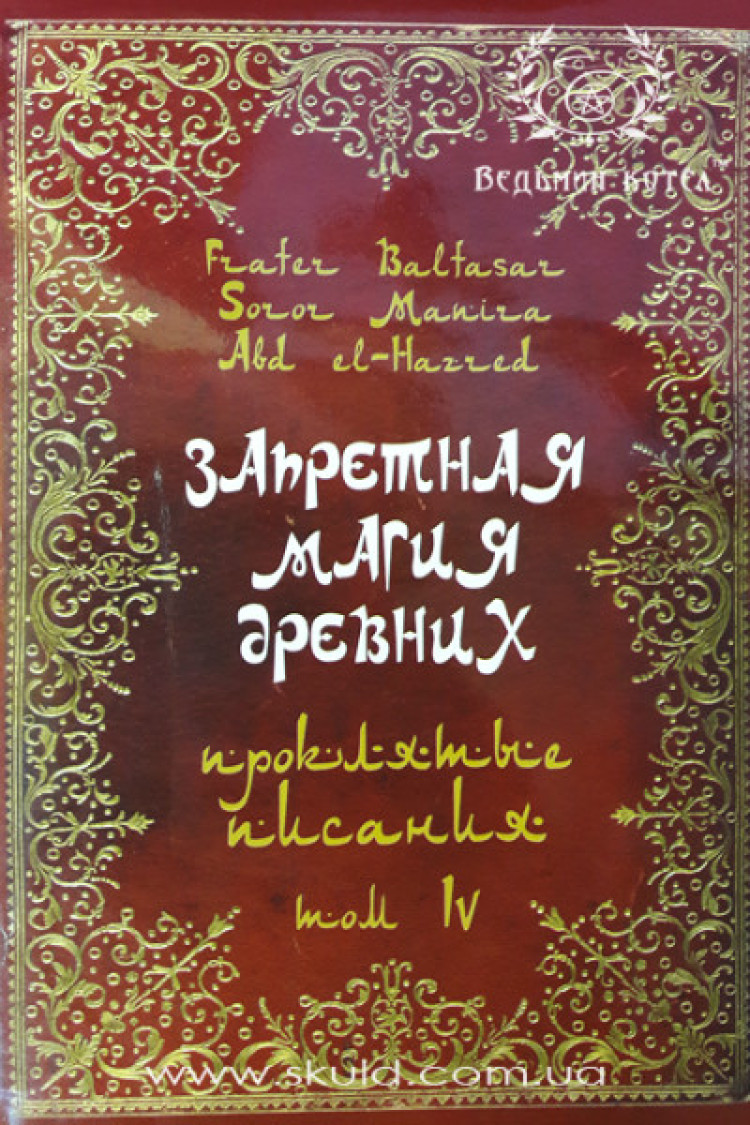 Ведьмин котел™
Frater Baltasar
Soror Manira
Abd el-Hazred
ЗАПРЕТНАЯ
МАГИЯ
ДРЕВНИХ
проклятые
писания
том IV
www.skuld.com.ua